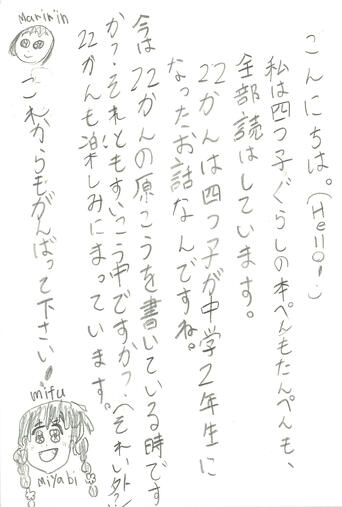 こんにちは。(Hello!:)
私は四つ子ぐらしの本ぺんもたんぺんも、
全部読はしています。
22かんは四つ子が中学2年生に
なったお話なんですね。
今は22かんの原こうを書いている時です
か?それともすいこう中ですか?へそれい外?
22かんも楽しみにまっています。
これからもがんばって下さい!
Maririn
mifu
miyabi